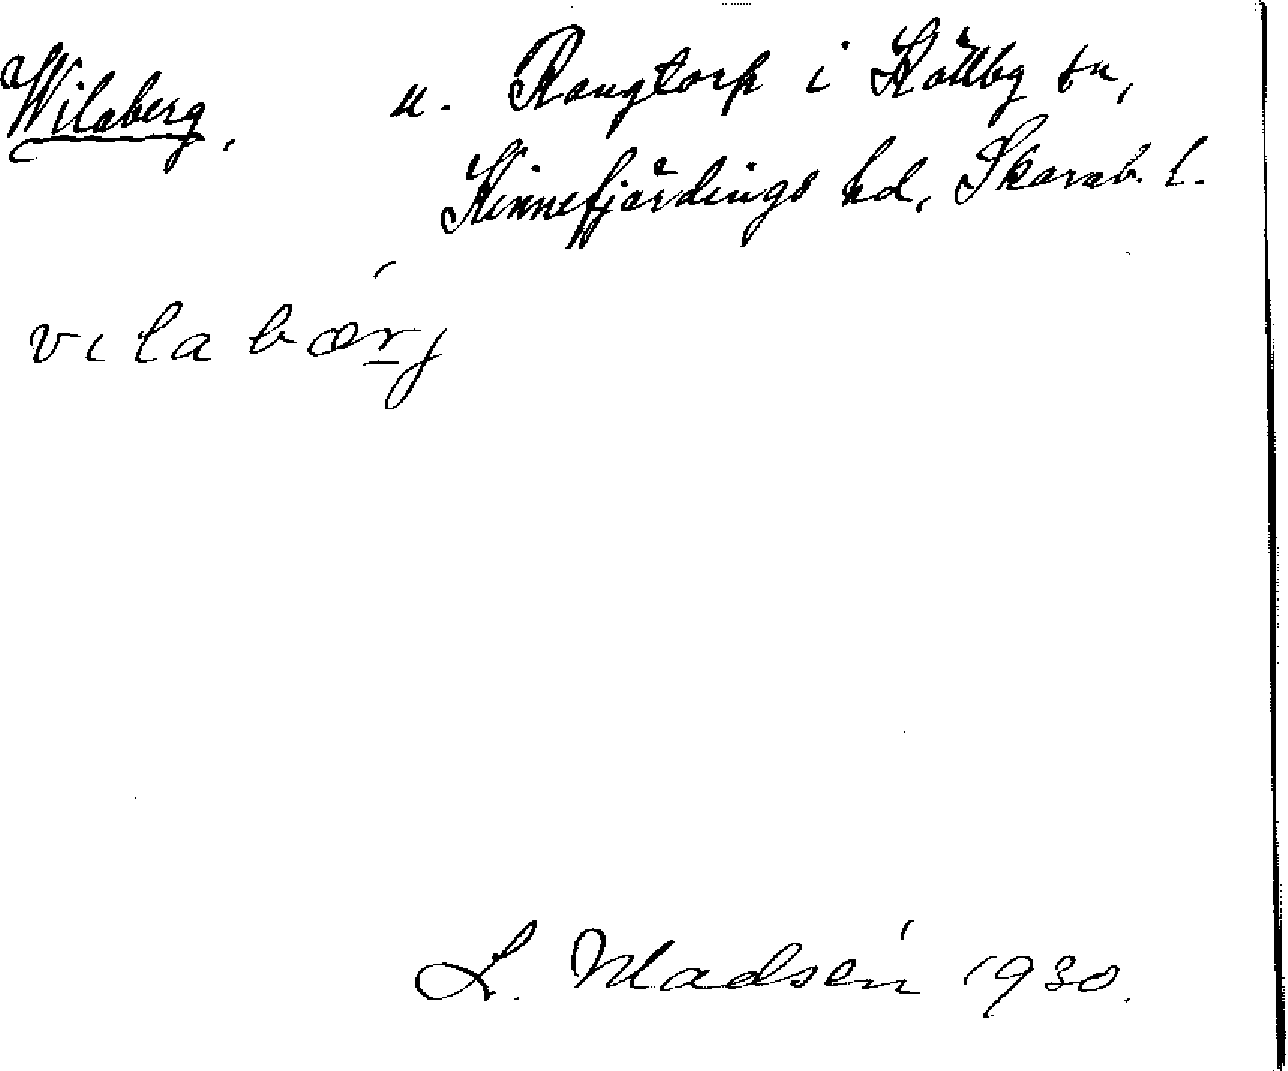 Wilaberg, u. Rangtorp i Källby sn,
Kinnefjärdings hd, Skarab. l.
vilabærj
L. Madsén 1930.